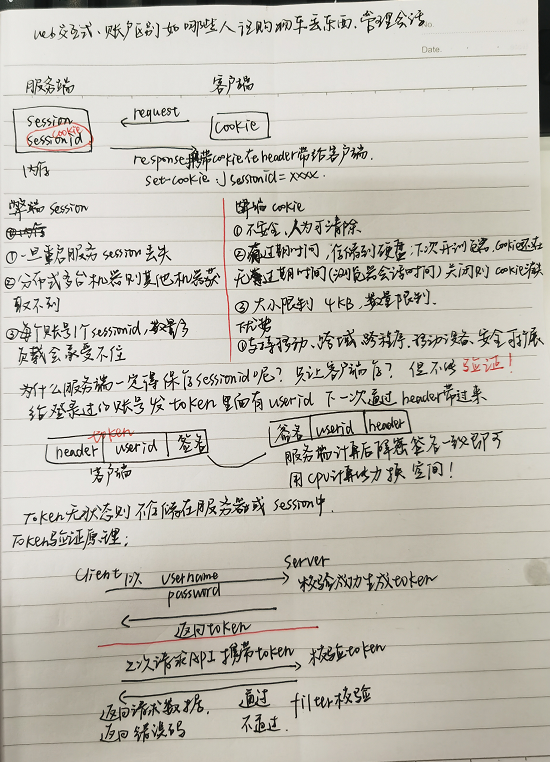 web交互式、账户区别如哪些人让购物车买东西、管理会话
No.
Date.
服务端 客户端
session
cookie
sessionid
内存
request
cookie
response携带cookie在header带给客户端.
set-cookie: sessionid=xxxx.
弊端 session
①一旦重启服务session丢失
②分布式多台机器则其他机器获
取不到
③每个账号1个sessionid,数量多
负载会承受不住
弊端 cookie
①不安全,人为可清除
②有过期时间,存储到硬盘;下次开浏览器,cookie还在
无过期时间(浏览器会话时间)关闭则cookie消失
③大小限制 4KB,数量限制.
优势
①支持移动、跨域 跨程序、移动设备、安全可扩展
为什么服务端一定得保存sessionid呢?只让客户端存?但不能验证!
给登录过的账号发token里面有userid 下一次通过header带过来
token
header userid 签名
客户端
签名 userid header
服务端计算后解密签名一致即可
用cpu计算能力换空间!
Token无状态则不存储在服务器或session中.
Token验证原理:
client 1次 username
password
server
校验成功生成token
返回token
2次请求API携带token
校验token
返回请求数据. 通过
返回错误码 不通过.
filter校验